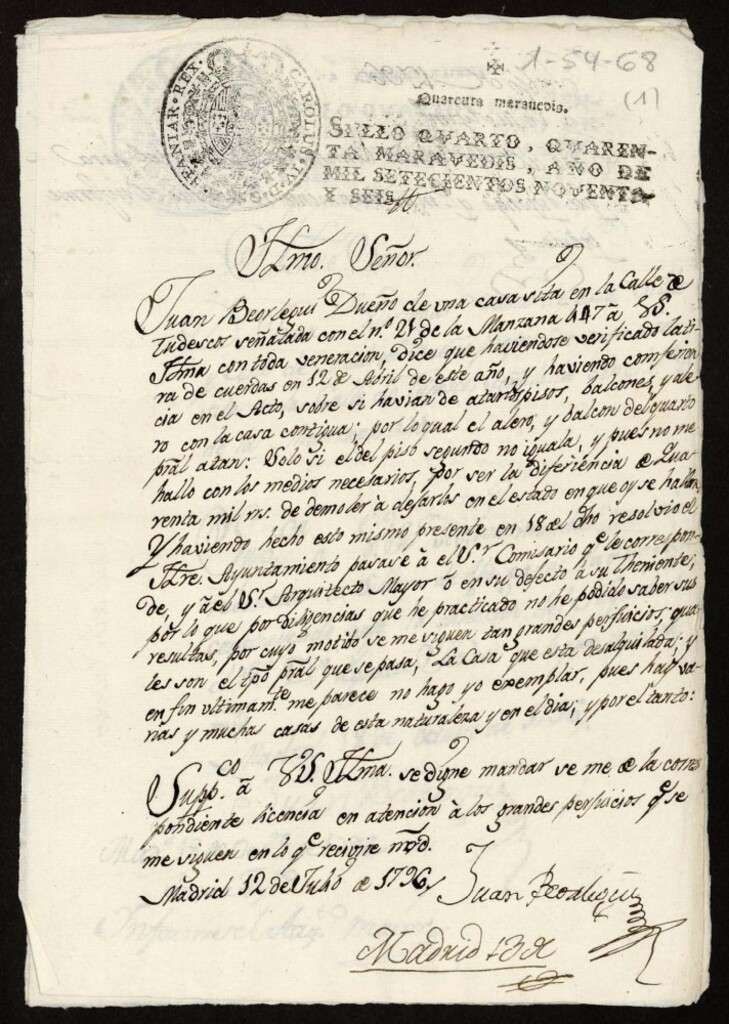 1-54-68
(1)
HISPANIAR. REX. CAROLUS. IV. D. G.
Quarenta marauedis.
SELLO QVARTO, QVAREN-
TA MARAVEDIS, AÑO DE
MIL SETECIENTOS NOVENTA
Y SEIS
Ylmo. Señor.
Juan Beorlegui Dueño de una casa sita en la Calle de
Tudescos señalada con el n.º 21 de la Manzana 447 à V.S.
Ylma con toda veneracion, dice que haviendose verificado la ti-
ra de cuerdas en 12 de Abril de este año, y haviendo comferen-
cia en el Acto, sobre si havian de atar pisos, balcones, y ale-
ro con la casa contigua; por lo qual el alero, y balcon del quarto
pral atan: Solo si el del piso segundo no iguala, y pues no me
hallo con los medios necesarios, por ser la diferiencia de Qua-
renta mil rs. de demoler à dejarlos en el estado en que oy se hallan
Y haviendo hecho esto mismo presente en 18 del dho resolvio el
Yltre. Ayuntamiento pasase à el S.r Comisario q.e le correspon-
de, y à el S.r Arquitecto Mayor ô en su defecto à su Theniente;
por lo que por diligencias que he practicado no he podido saber sus
resultas, por cuyo motibo se me siguen tan grandes perjuicios, qua-
les son el tpo pral que se pasa, La Casa que esta desalquilada; y
en fin ultimam.te me parece no hago yo exemplar, pues hay va-
rias y muchas casas de esta naturaleza y en el dia; y por el tanto:
Supp.co à V.S. Ylma. se digne mandar se me de la corres
pondiente licencia en atencion à los grandes perjuicios q.e se
me siguen en lo q.e recivire mrd.
Madrid 12 de Julio de 1796
Juan Beorlegui
Madrid 13